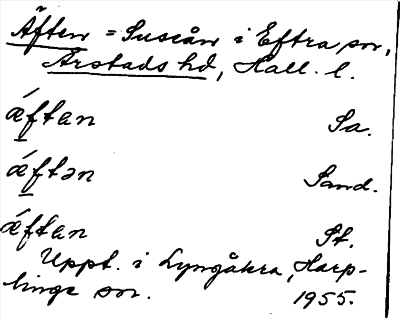 Äften = Suseån i Eftra sn,
Årstads hd, Hall. l.
ǽftan Sa.
ǽftən Sand.
ǽftan St.
Uppt. i Lyngåkra, Harp-
linge sn. 1955.